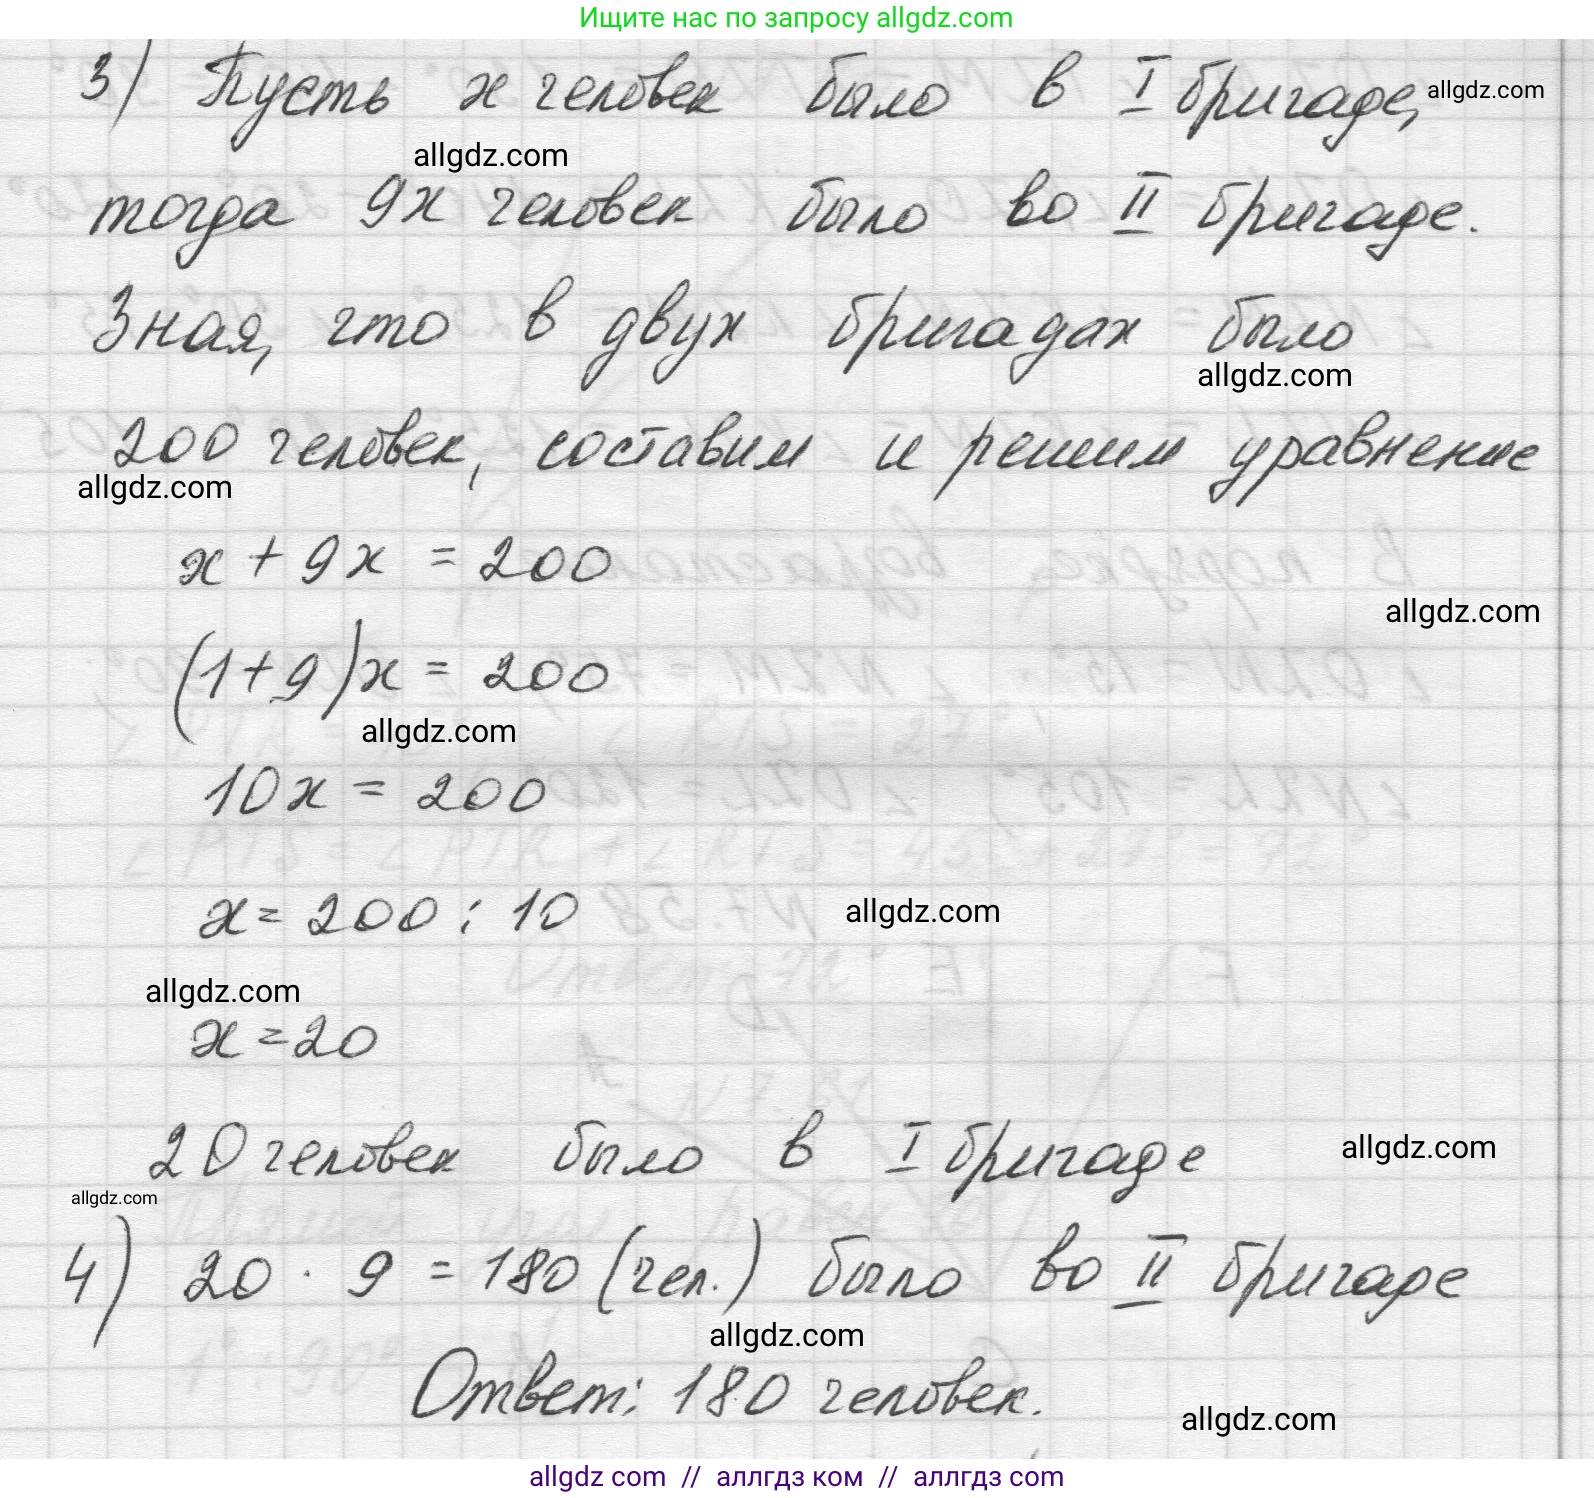 Ищите нас по запросу allgdz.com
3) Пусть х человек было в I бригаде,
allgdz.com
allgdz.com
тогда 9х человек было во II бригаде.
Зная, что в двух бригадах было
allgdz.com
200 человек, составим и решим уравнение
allgdz.com
х + 9х = 200
allgdz.com
(1+9)х = 200
allgdz.com
10х = 200
х = 200 : 10
allgdz.com
allgdz.com
х = 20
20 человек было в I бригаде
allgdz.com
allgdz.com
4) 20 · 9 = 180 (чел.) было во II бригаде
allgdz.com
Ответ: 180 человек.
allgdz.com
allgdz com // аллгдз ком // аллгдз com